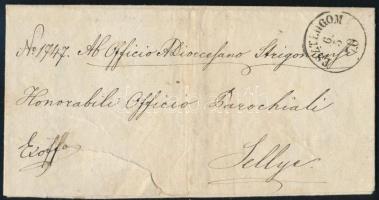 No 1747. Ab Officio A Dioecesano Strigonien
ESZTERGOM
6
5
Honorabili Officio Parochiali
Ex offo
Sellye.